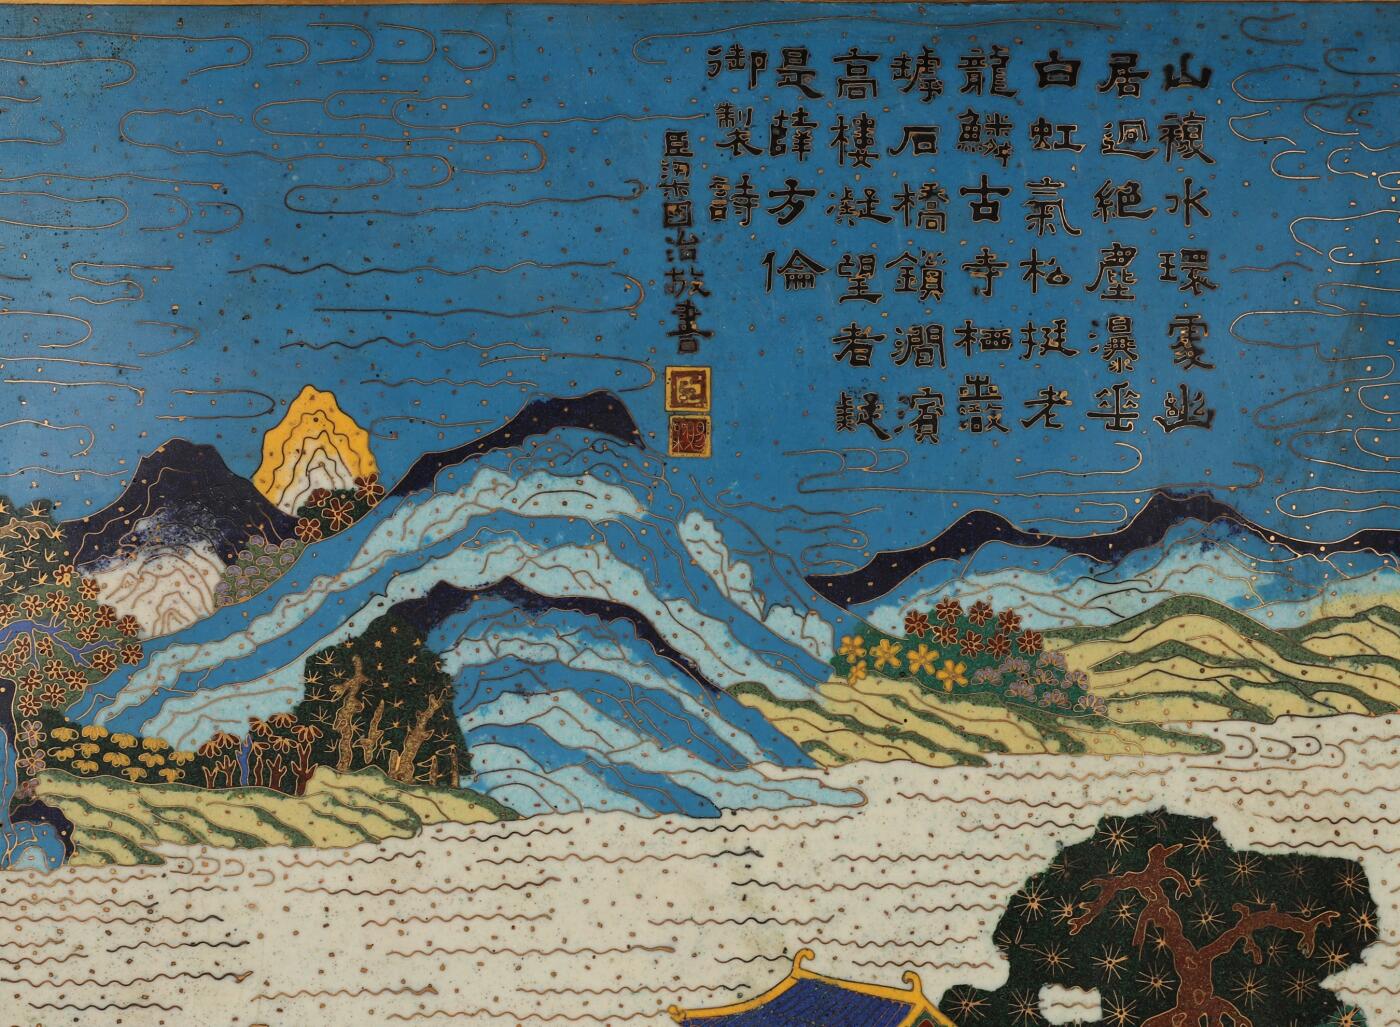 山複水環處幽
居迥絕塵瀑垂
白虹氣松挺老
龍鱗古寺栖巖
罅石橋鎖澗濱
高樓凝望者疑
是薛方倫
御製詩
臣梁國治敬書
臣